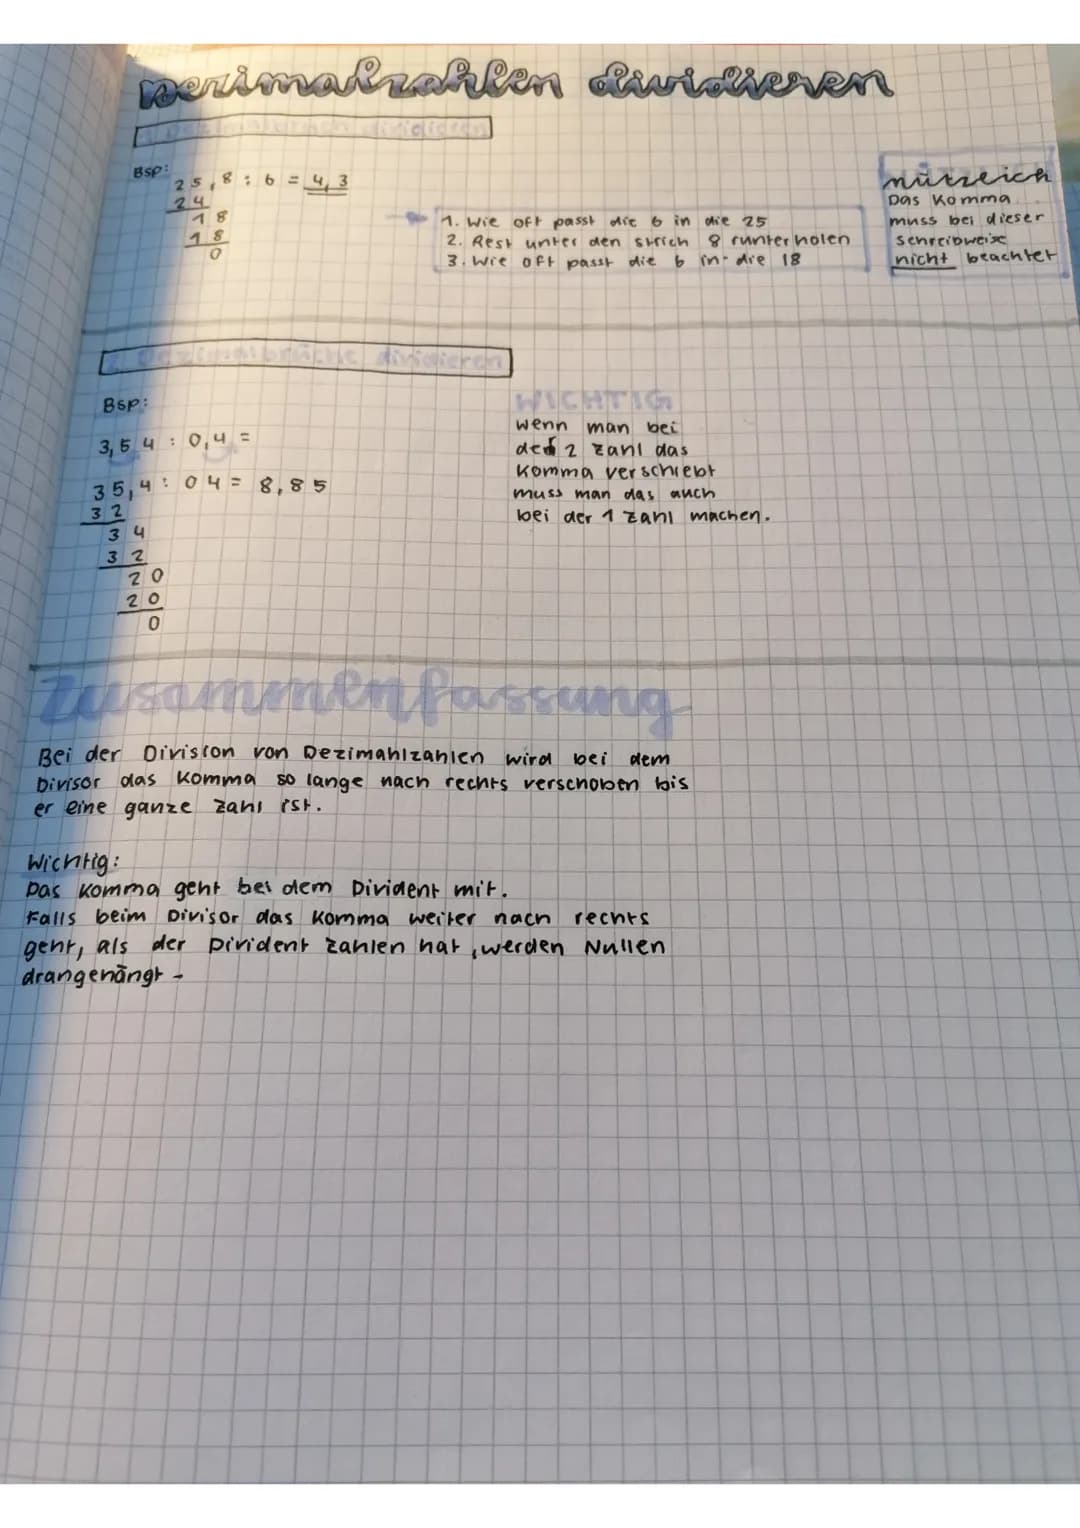 Dezimalzahlen dividieren
1. Dezimalbruch dividieren
Bsp:
25,8 : 6 = 4,3
24
18
18
0
1. Wie oft passt die 6 in die 25
2. Rest unter den strich 8 runterholen
3. Wie oft passt die 6 in die 18
nützleich
Das Komma
muss bei dieser
schreibweise
nicht beachtet
2. Dezimalbrüche dividieren
Bsp:
3,54 : 0,4 =
35,4 : 04 = 8,85
32
34
32
20
20
0
WICHTIG
wenn man bei
der 2 zahl das
Komma verschiebt
muss man das auch
bei der 1 zahl machen.
Zusammenfassung
Bei der Division von Dezimahlzahlen wird bei dem
Divisor das Komma so lange nach rechts verschoben bis
er eine ganze zahl ist.
Wichtig:
Das Komma geht bei dem Divident mit.
Falls beim Divisor das Komma weiter nach rechts
geht, als der Divident zahlen hat, werden Nullen
drangehängt -